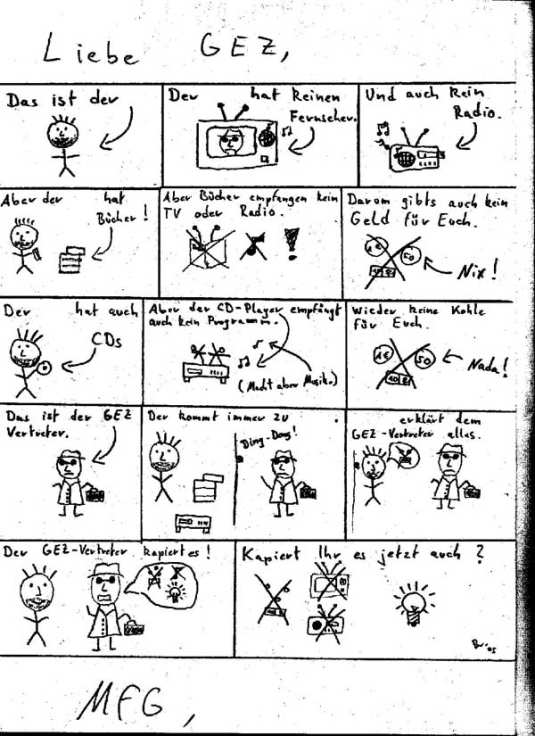 Liebe GEZ,
Das ist der
Der hat keinen
Fernseher.
Und auch kein
Radio.
Aber der hat
Bücher!
Aber Bücher empfangen kein
TV oder Radio.
Darum gibts auch kein
Geld für Euch.
1€
50
10 €
Nix!
Der hat auch
CDs
Aber der CD-Player empfängt
auch kein Programm.
(Macht aber Musik.)
Wieder keine Kohle
für Euch.
1€
50
10 €
Nada!
Das ist der GEZ
Vertreter.
Der kommt immer zu .
Ding-Dong!
erklärt dem
GEZ-Vertreter alles.
Der GEZ-Vertreter kapiert es!
Kapiert Ihr es jetzt auch ?
MFG,